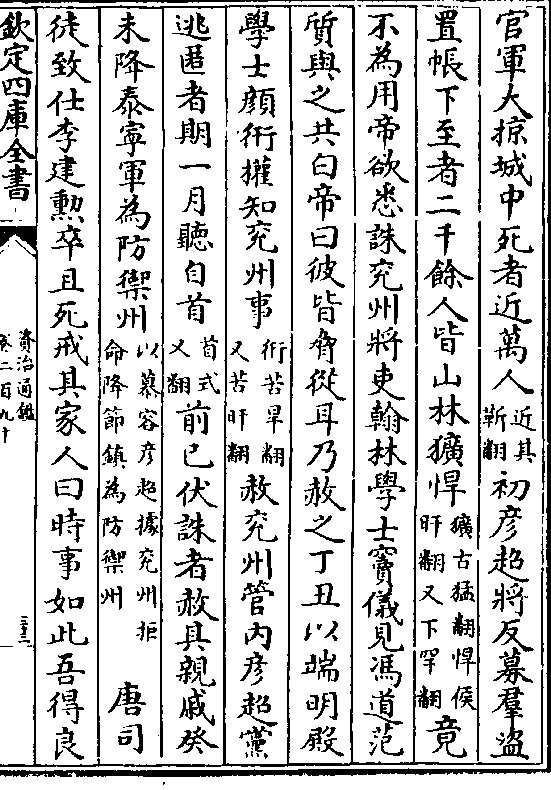 官軍大掠城中死者近萬人近其靳翻初彥超將反募羣盜
置帳下至者二千餘人皆山林獷悍獷古猛翻悍侯旰翻又下罕翻竟
不為用帝欲悉誅兖州將吏翰林學士竇儀見馮道范
質與之共白帝曰彼皆脅從耳乃赦之丁丑以端明殿
學士顔衎權知兖州事衎苦旱翻又苦旰翻赦兖州管内彥超黨
逃匿者期一月聽自首首式又翻前已伏誅者赦其親戚癸
未降泰寧軍為防禦州以慕容彥超據兖州拒命降節鎮為防禦州唐司
徒致仕李建勲卒且死戒其家人曰時事如此吾得良
欽定四庫全書
資治通鑑
卷二百九十